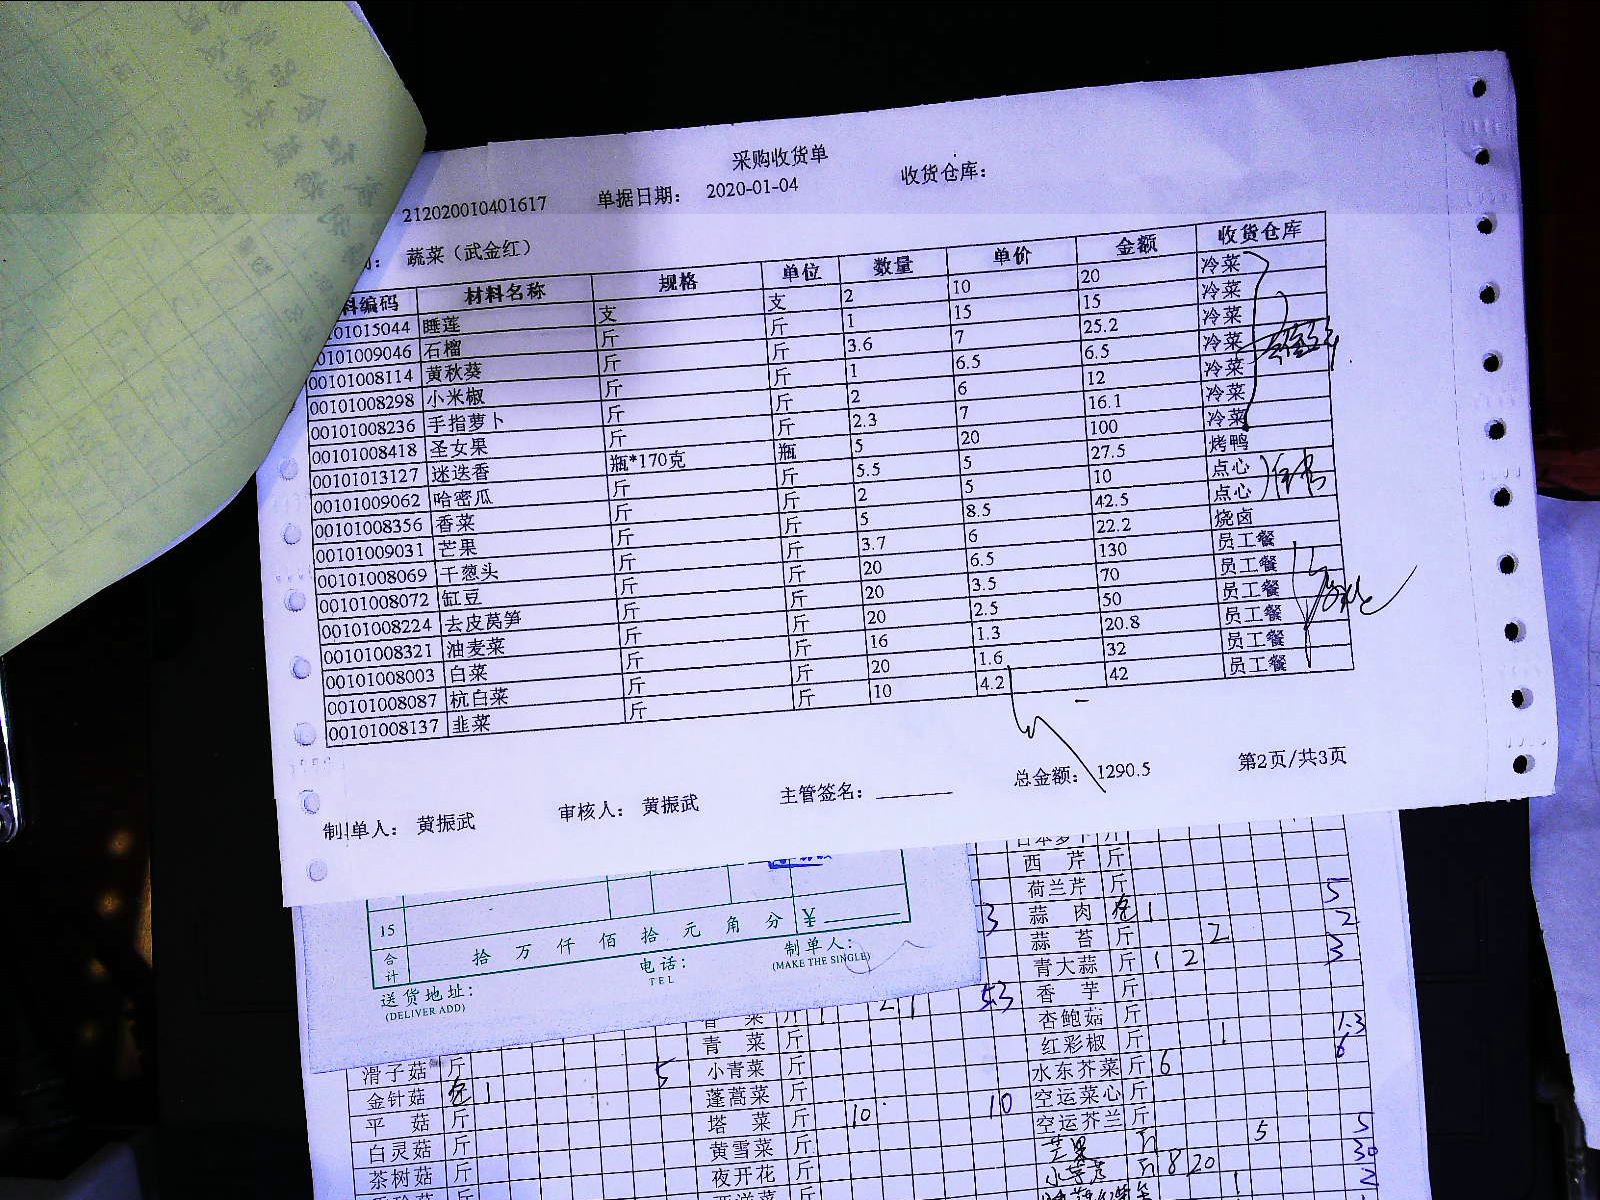 采购收货单
212020010401617 单据日期： 2020-01-04 收货仓库：
蔬菜（武金红）
料编码 材料名称 规格 单位 数量 单价 金额 收货仓库
101015044 睡莲 支 支 2 10 20 冷菜
0101009046 石榴 斤 斤 1 15 15 冷菜
00101008114 黄秋葵 斤 斤 3.6 7 25.2 冷菜
00101008298 小米椒 斤 斤 1 6.5 6.5 冷菜
00101008236 手指萝卜 斤 斤 2 6 12 冷菜
00101008418 圣女果 斤 斤 2.3 7 16.1 冷菜
00101013127 迷迭香 瓶*170克 瓶 5 20 100 冷菜
00101009062 哈密瓜 斤 斤 5.5 5 27.5 烤鸭
00101008356 香菜 斤 斤 2 5 10 点心
00101009031 芒果 斤 斤 5 8.5 42.5 点心
00101008069 干葱头 斤 斤 3.7 6 22.2 烧卤
00101008072 缸豆 斤 斤 20 6.5 130 员工餐
00101008224 去皮莴笋 斤 斤 20 3.5 70 员工餐
00101008321 油麦菜 斤 斤 20 2.5 50 员工餐
00101008003 白菜 斤 斤 16 1.3 20.8 员工餐
00101008087 杭白菜 斤 斤 20 1.6 32 员工餐
00101008137 韭菜 斤 斤 10 4.2 42 员工餐
总金额： 1290.5 第2页/共3页
制单人： 黄振武 审核人： 黄振武 主管签名：
15
合计 拾 万 仟 佰 拾 元 角 分 ¥
送货地址： 电话： 制单人：
(DELIVER ADD) TEL (MAKE THE SINGLE)
西芹 斤
荷兰芹 斤 5
3 蒜肉 1 2
蒜苔 斤 2 3
青大蒜 斤 1 2
2 1 53 香芋 斤
青菜 斤 杏鲍菇 斤 1 1.3
滑子菇 斤 5 小青菜 斤 红彩椒 斤 6
金针菇 1 蓬蒿菜 斤 水东芥菜 斤 6
平菇 斤 塔菜 斤 10 10 空运菜心 斤
白灵菇 斤 黄雪菜 斤 空运芥兰 斤 5 5
茶树菇 斤 夜开花 斤 芒果 斤 8 20 30